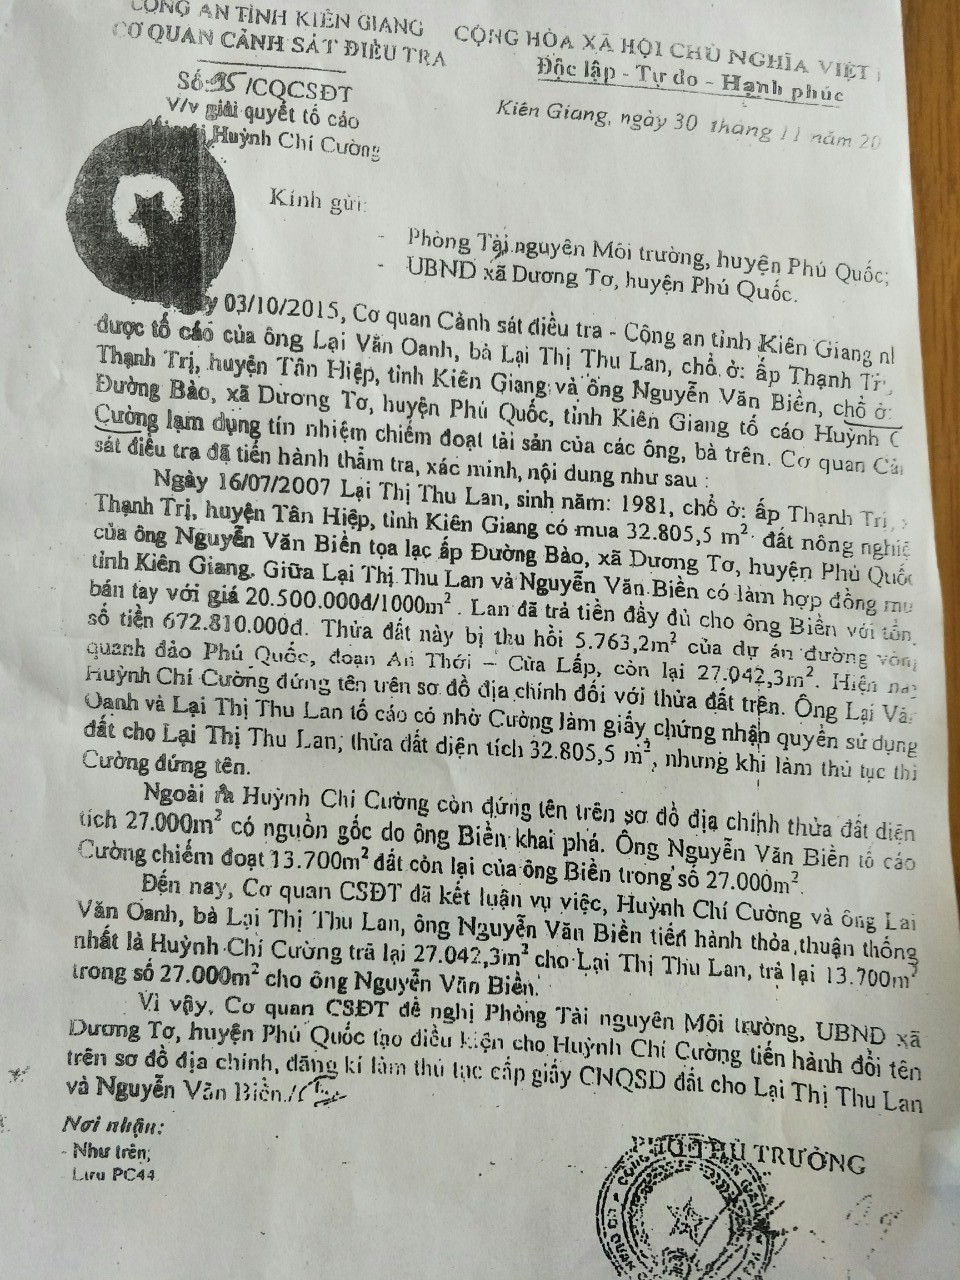 CÔNG AN TỈNH KIÊN GIANG
CƠ QUAN CẢNH SÁT ĐIỀU TRA
CỘNG HÒA XÃ HỘI CHỦ NGHĨA VIỆT
Độc lập - Tự do - Hạnh phúc
Số: 95/CQCSĐT
V/v giải quyết tố cáo
Huỳnh Chí Cường
Kiên Giang, ngày 30 tháng 11 năm 20
Kính gửi:
- Phòng Tài nguyên Môi trường, huyện Phú Quốc;
- UBND xã Dương Tơ, huyện Phú Quốc.
03/10/2015, Cơ quan Cảnh sát điều tra - Công an tỉnh Kiên Giang
được tố cáo của ông Lại Văn Oanh, bà Lại Thị Thu Lan, chổ ở: ấp Thạnh Tr
Thạnh Trị, huyện Tân Hiệp, tỉnh Kiên Giang và ông Nguyễn Văn Biền, chổ ở:
Đường Bào, xã Dương Tơ, huyện Phú Quốc, tỉnh Kiên Giang tố cáo Huỳnh C
Cường lạm dụng tín nhiệm chiếm đoạt tài sản của các ông, bà trên. Cơ quan Cả
sát điều tra đã tiến hành thẩm tra, xác minh, nội dung như sau :
Ngày 16/07/2007 Lại Thị Thu Lan, sinh năm: 1981, chổ ở: ấp Thạnh Trị,
Thạnh Trị, huyện Tân Hiệp, tỉnh Kiên Giang có mua 32.805,5 m² đất nông nghiệ
của ông Nguyễn Văn Biền tọa lạc ấp Đường Bào, xã Dương Tơ, huyện Phú Quốc
tỉnh Kiên Giang. Giữa Lại Thị Thu Lan và Nguyễn Văn Biền có làm hợp đồng mu
bán tay với giá 20.500.000đ/1000m². Lan đã trả tiền đầy đủ cho ông Biền với tổn
số tiền 672.810.000đ. Thửa đất này bị thu hồi 5.763,2m² của dự án đường vòng
quanh đảo Phú Quốc, đoạn An Thới – Cửa Lấp, còn lại 27.042,3m². Hiện nay
Huỳnh Chí Cường đứng tên trên sơ đồ địa chính đối với thửa đất trên. Ông Lại Vă
Oanh và Lại Thị Thu Lan tố cáo có nhờ Cường làm giấy chứng nhận quyền sử dụng
đất cho Lại Thị Thu Lan, thửa đất diện tích 32.805,5 m², nhưng khi làm thủ tục thì
Cường đứng tên.
Ngoài ra Huỳnh Chí Cường còn đứng tên trên sơ đồ địa chính thửa đất diện
tích 27.000m² có nguồn gốc do ông Biền khai phá. Ông Nguyễn Văn Biền tố cáo
Cường chiếm đoạt 13.700m² đất còn lại của ông Biền trong số 27.000m².
Đến nay, Cơ quan CSĐT đã kết luận vụ việc, Huỳnh Chí Cường và ông Lại
Văn Oanh, bà Lại Thị Thu Lan, ông Nguyễn Văn Biền tiến hành thỏa thuận thống
nhất là Huỳnh Chí Cường trã lại 27.042,3m² cho Lại Thị Thu Lan, trả lại 13.700m²
trong số 27.000m² cho ông Nguyễn Văn Biền.
Vì vậy, Cơ quan CSĐT đề nghị Phòng Tài nguyên Môi trường, UBND xã
Dương Tơ, huyện Phú Quốc tạo điều kiện cho Huỳnh Chí Cường tiến hành đổi tên
trên sơ đồ địa chính, đăng kí làm thủ tục cấp giấy CNQSD đất cho Lại Thị Thu Lan
và Nguyễn Văn Biền./.
Nơi nhận:
- Như trên;
Lưu PC44
PHÓ THỦ TRƯỞNG